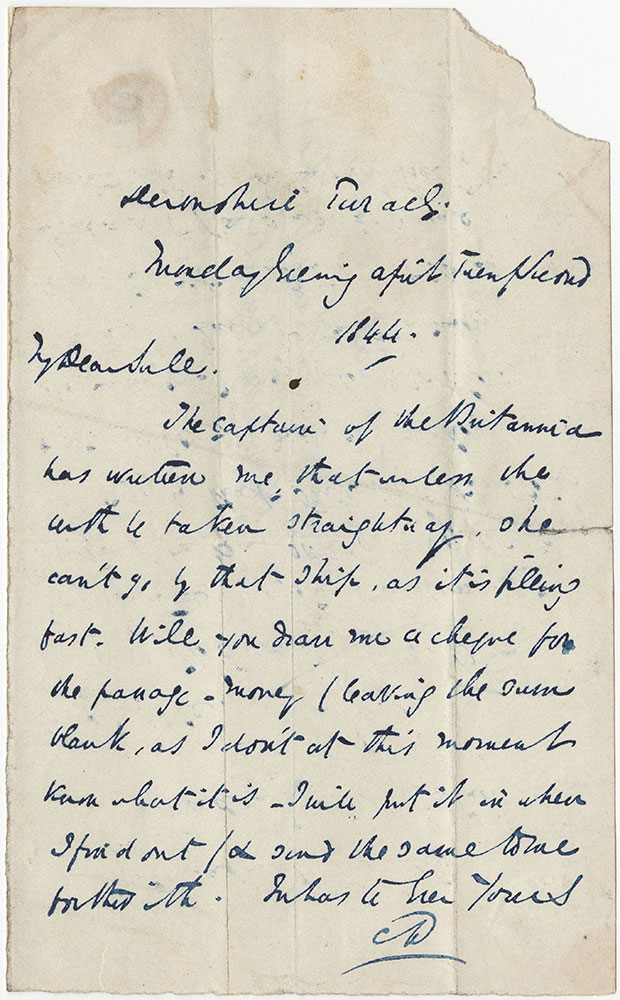 Devonshire Terrace.
Monday Evening April Twenty Second
1844.
My Dear Sill.
The captain of the Britannia
has written me, that unless the
berth be taken straightway, she
can't go by that ship, as it is filling
fast. Will you draw me a cheque for
the passage-money (leaving the sum
blank, as I don't at this moment
know what it is - I will put it in when
I find out) & send the same to me
forthwith. In haste Ever Yours
CD